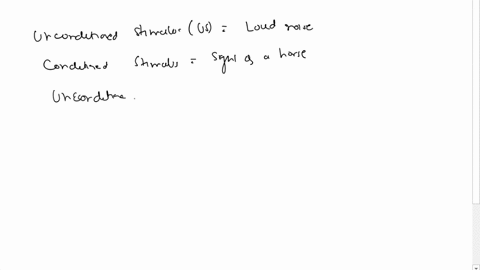 Unconditioned Stimulus (US) = Loud noise
Conditioned Stimulus = Sight of a horse
Uncondition